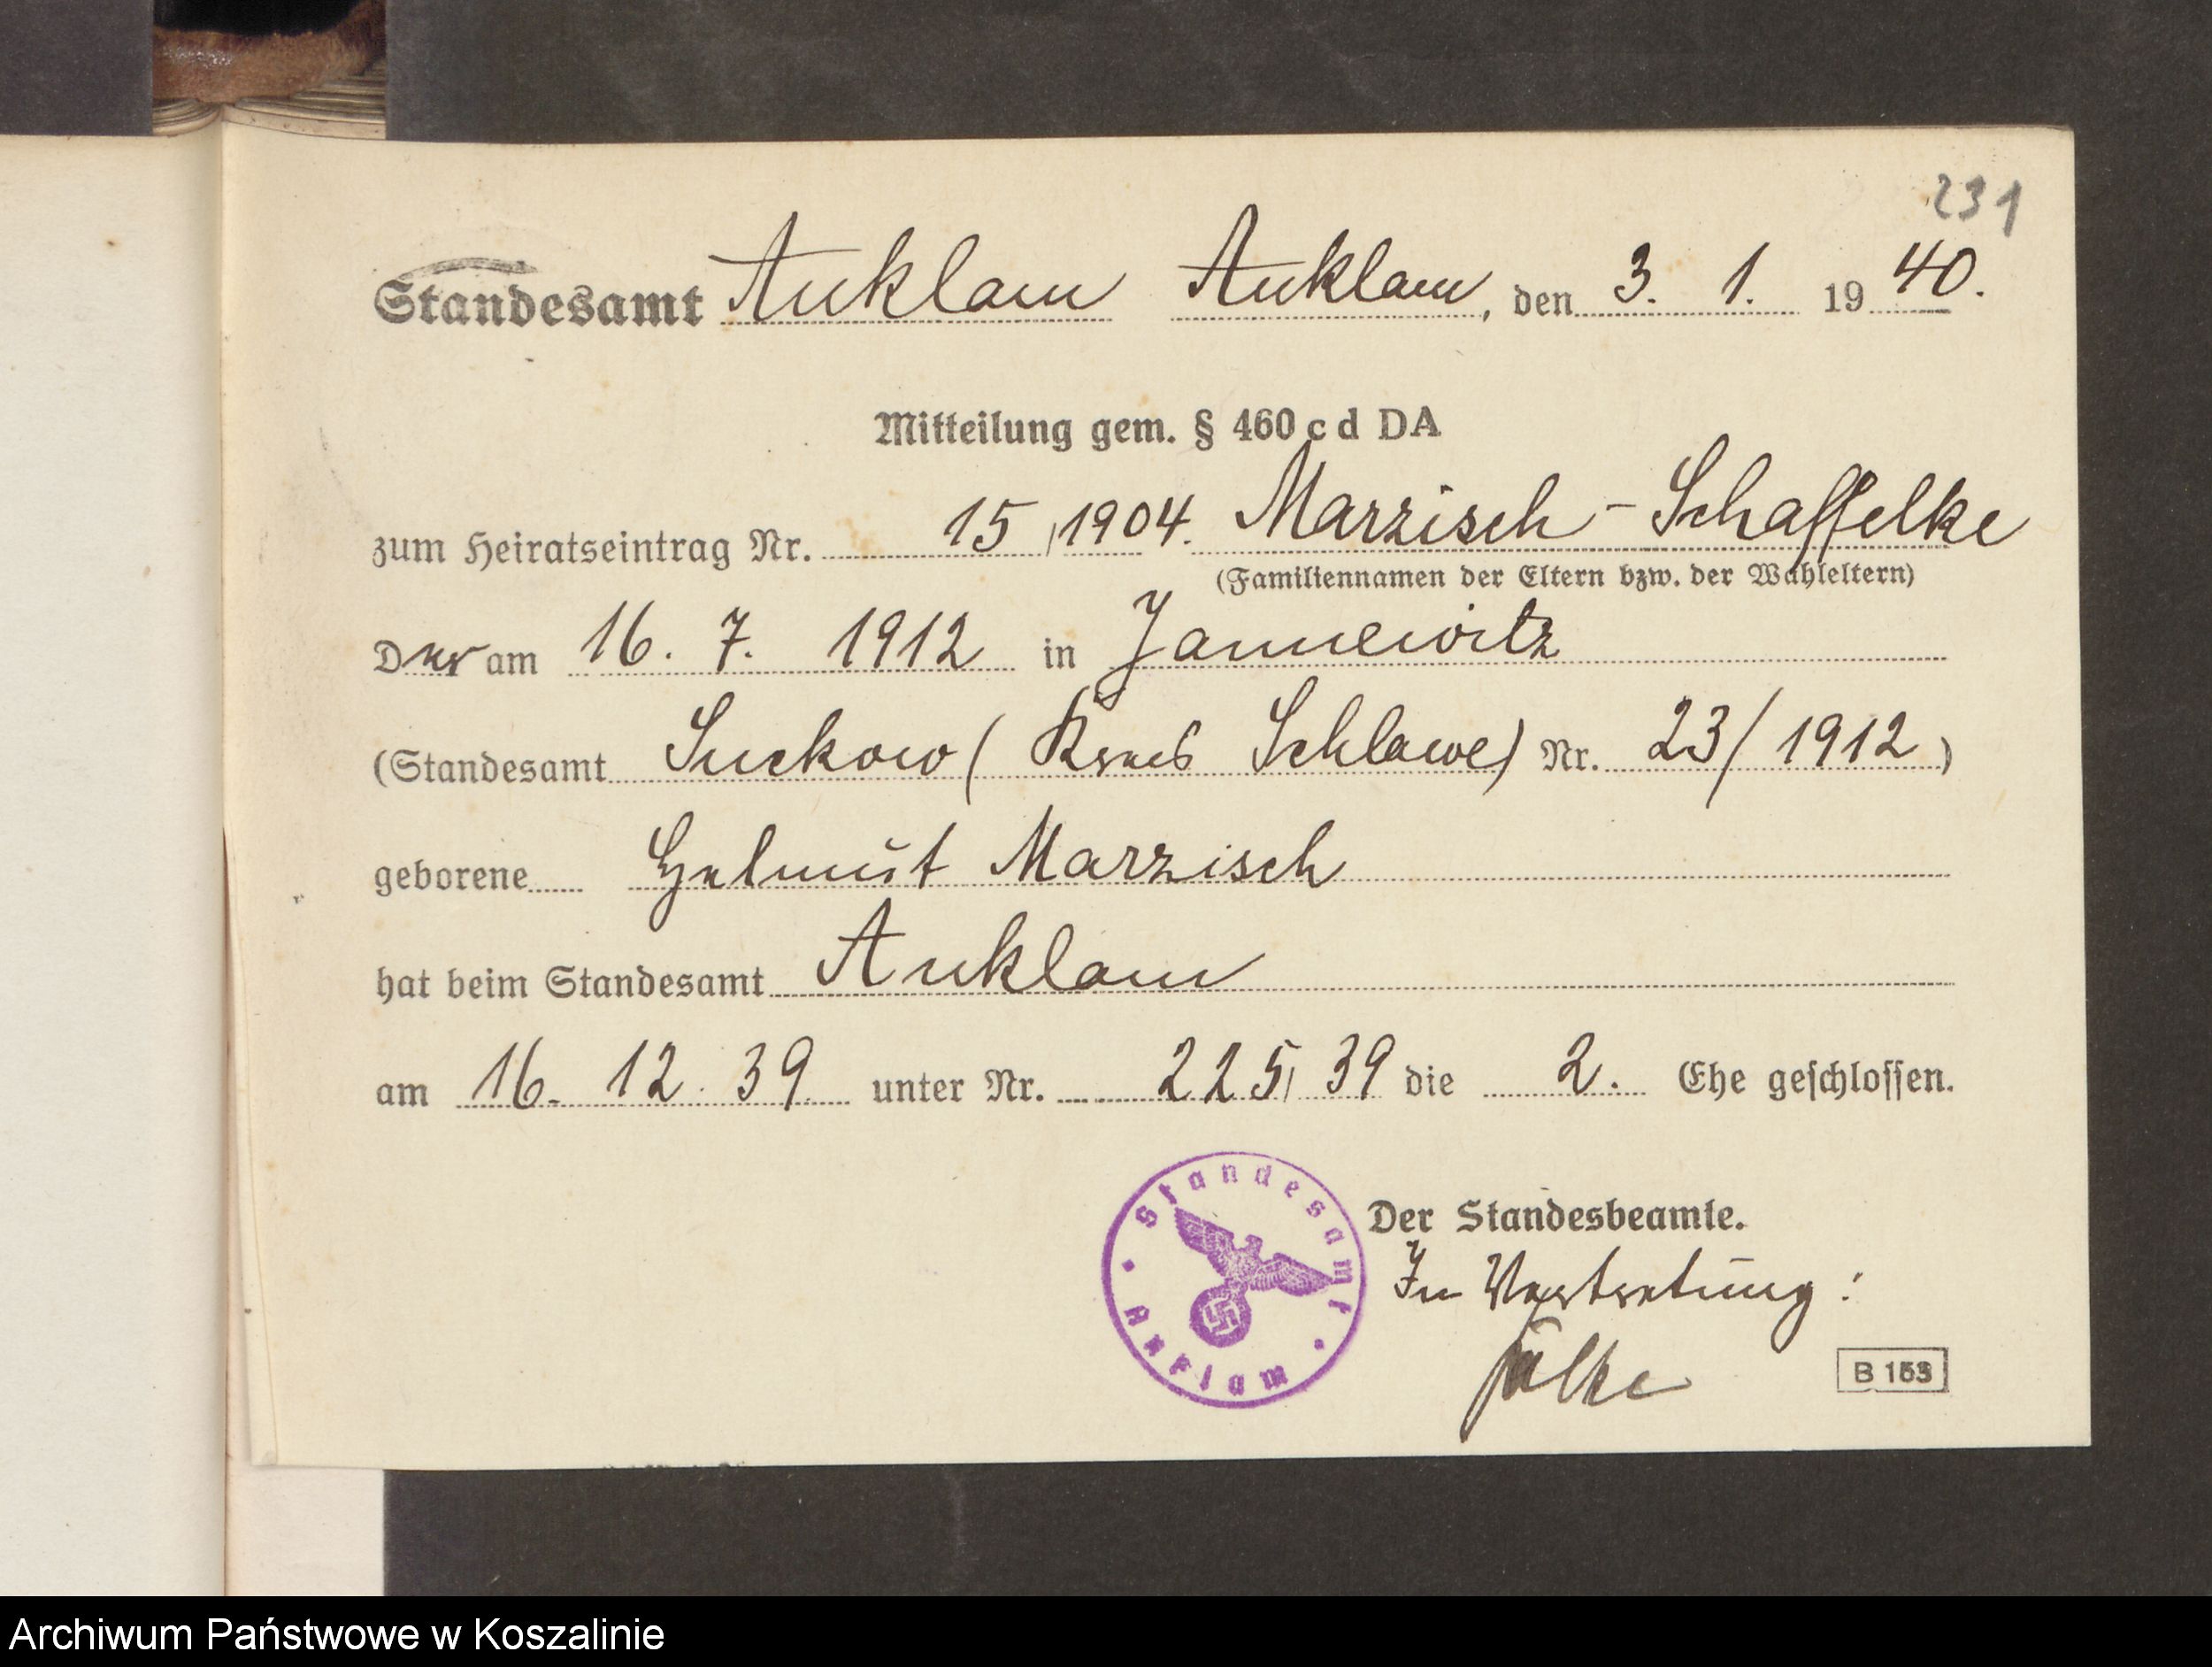 231
Standesamt Anklam Anklam, den 3. 1. 1940.
Mitteilung gem. § 460 c d DA
zum Heiratseintrag Nr. 15/1904. Marzisch - Schaffelke
(Familiennamen der Eltern bzw. der Wahleltern)
Der am 16. 7. 1912 in Jannewitz
(Standesamt Suckow (Kreis Schlawe) Nr. 23/1912)
geborene Helmut Marzisch
hat beim Standesamt Anklam
am 16. 12. 39 unter Nr. 225/39 die 2. Ehe geschlossen.
Standesamt
Anklam
Der Standesbeamte.
In Vertretung:
B 153
Archiwum Państwowe w Koszalinie